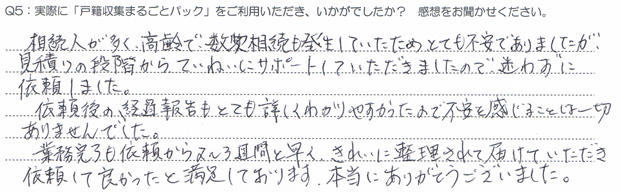 Q5：実際に「戸籍収集まるごとパック」をご利用いただき、いかがでしたか？ 感想をお聞かせください。
相続人が多く、高齢で、数次相続も発生していたため、とても不安でありましたが、
見積りの段階からていねいにサポートしていただきましたので迷わずに
依頼しました。
依頼後の経過報告もとても詳しくわかりやすかったので不安を感じることは一切
ありませんでした。
業務完了も依頼から2〜3週間と早く、きれいに整理されて届けていただき
依頼して良かったと満足しております。本当にありがとうございました。